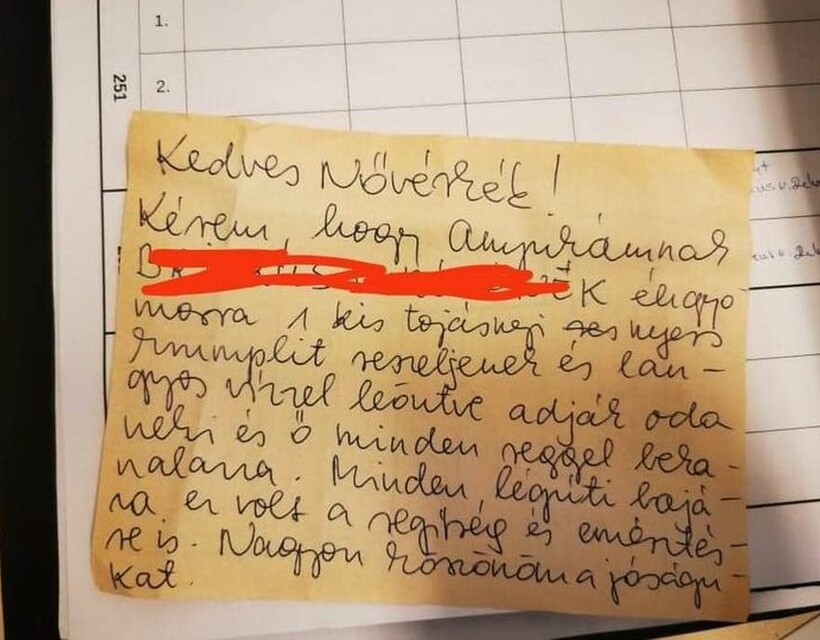 1.
251
2.
Kedves Nővérkék!
Kérem, hogy Anyukámnak
K éhgyo
morra 1 kis tojásnyi nyers
krumplit reszeljenek és lan-
gyos vízzel leöntve adják oda
neki és ő minden reggel beka-
nalazza. Minden légúti bajá-
ra ez volt a segítség és emésztés-
re is. Nagyon köszönöm a jóságu-
kat.